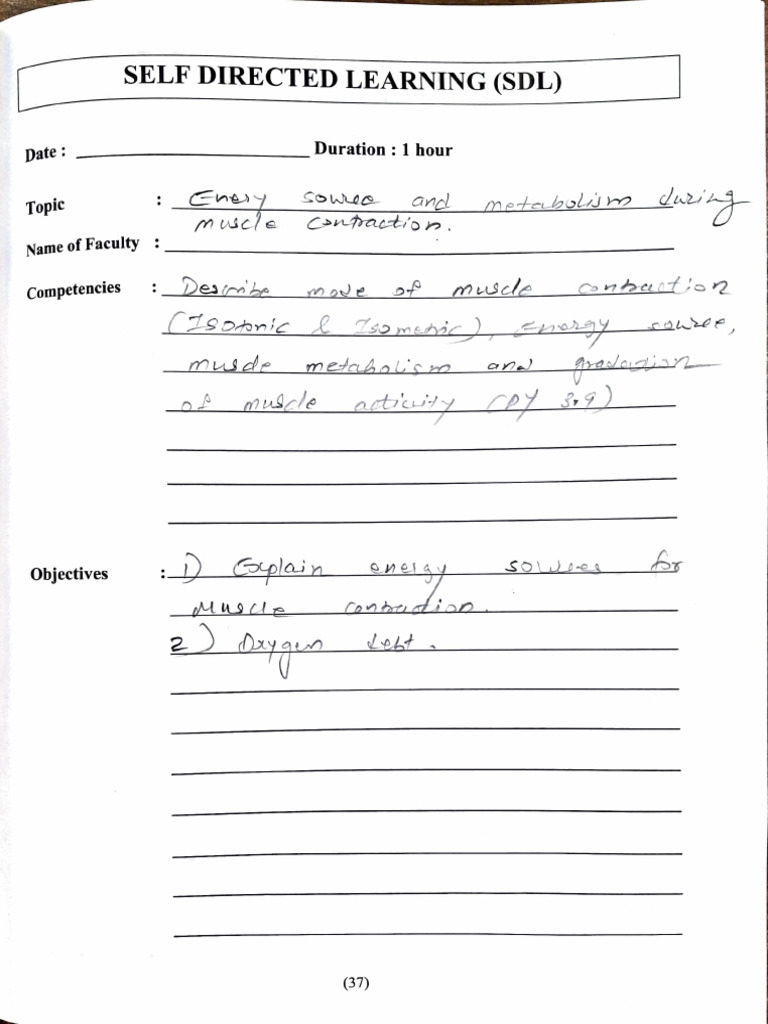 SELF DIRECTED LEARNING (SDL)
Date : Duration : 1 hour
Topic : Enery source and metabolism during
muscle contraction.
Name of Faculty :
Competencies : Describe mode of muscle contraction
(Isotonic & Isometric), energy source,
muscle metabolism and gradation
of muscle activity (PY 3.9)
Objectives : 1) Explain energy sources for
Muscle contraction.
2) Oxygen debt.
(37)